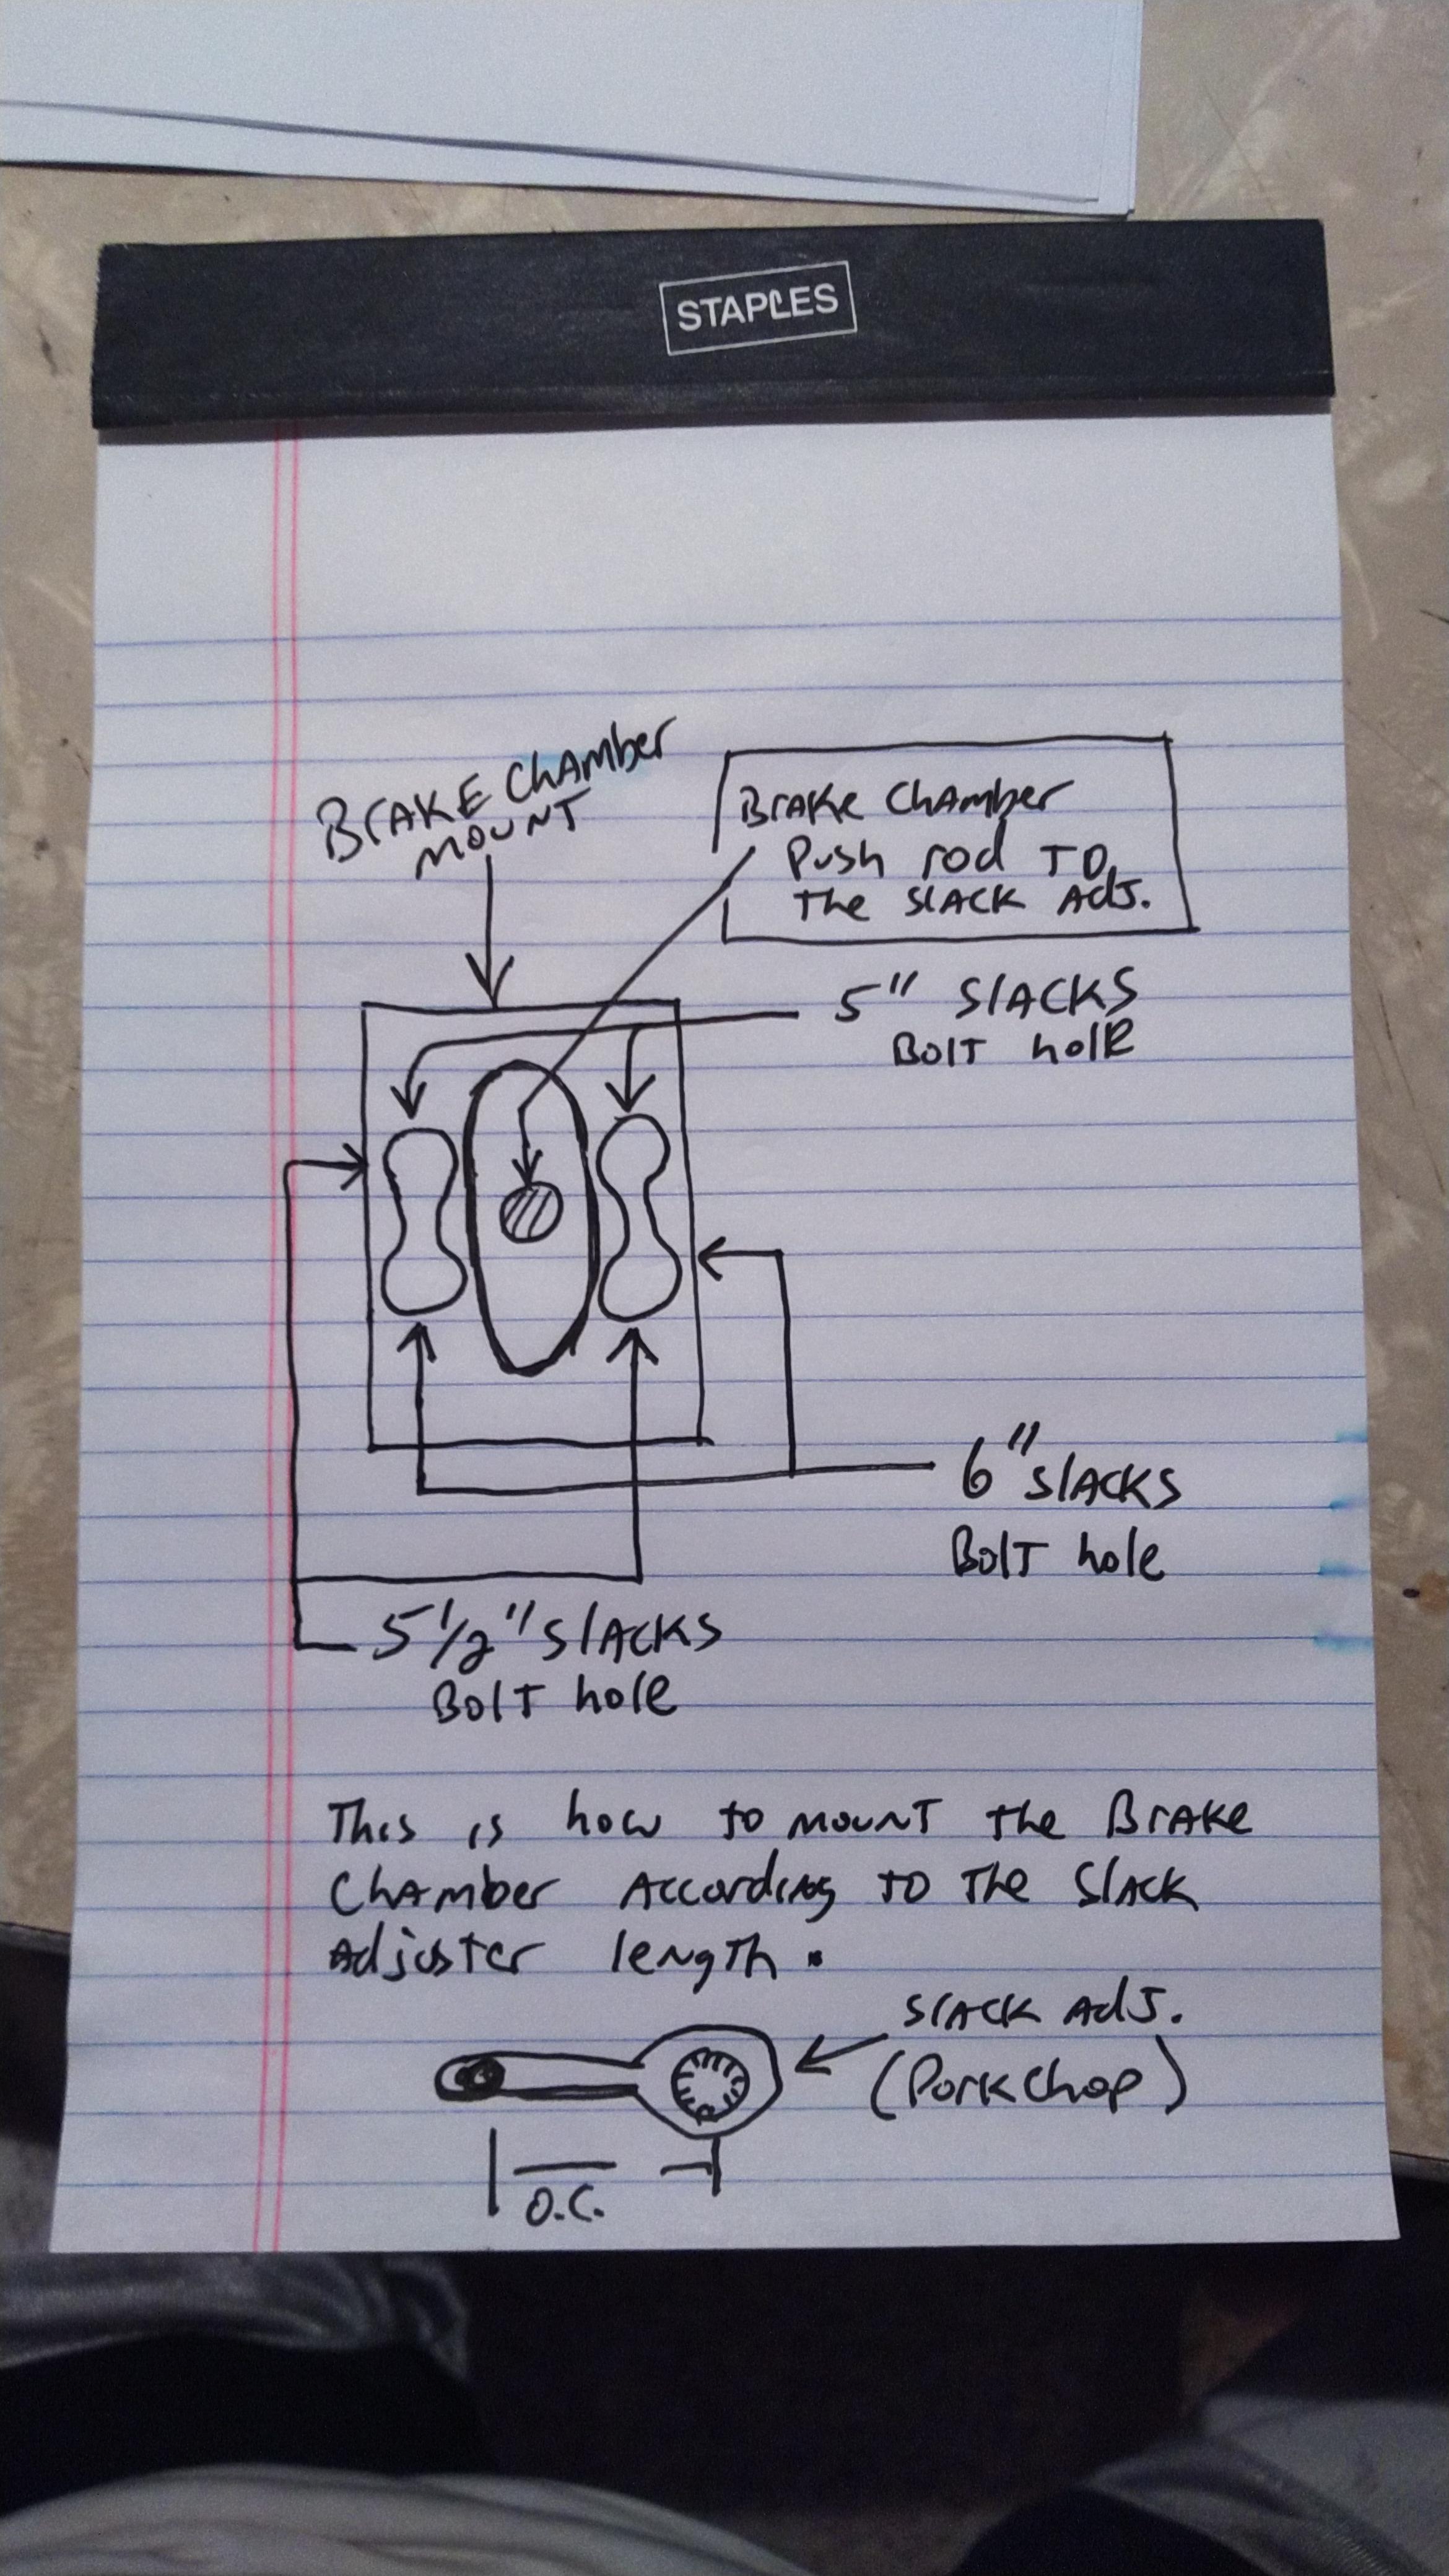 STAPLES
BrAKE ChAmber
mounT
BrAKe ChAmber
Push rod TO
The SlACK AdJ.
5" SlACKS
BolT hole
6" SlACKS
BolT hole
5 1/2" SlACKS
BolT hole
This is how to mounT the BrAKe
ChAmber According TO The SlAcK
Adjuster length.
SlACK AdJ.
(PorkChop)
O.C.